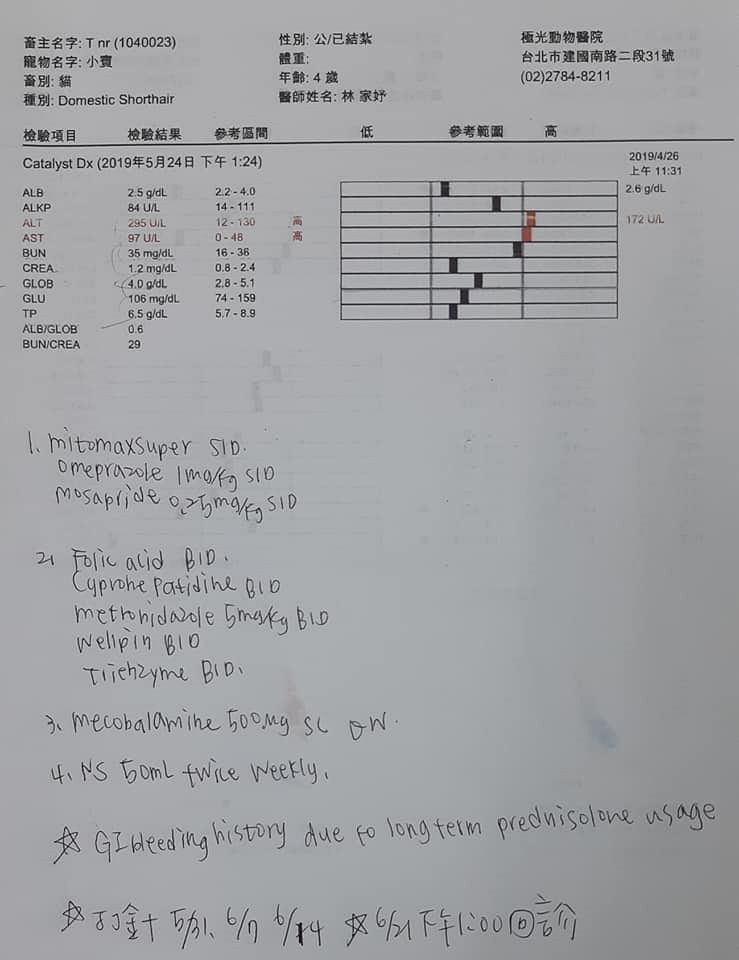 畜主名字: T nr (1040023) 性別: 公/已結紮 極光動物醫院
寵物名字: 小寶 體重: 台北市建國南路二段31號
畜別: 貓 年齡: 4 歲 (02)2784-8211
種別: Domestic Shorthair 醫師姓名: 林 家妤
檢驗項目 檢驗結果 參考區間 低 參考範圍 高
Catalyst Dx (2019年5月24日 下午 1:24) 2019/4/26
上午 11:31
ALB 2.5 g/dL 2.2 - 4.0 2.6 g/dL
ALKP 84 U/L 14 - 111
ALT 295 U/L 12 - 130 高 172 U/L
AST 97 U/L 0 - 48 高
BUN 35 mg/dL 16 - 36
CREA 1.2 mg/dL 0.8 - 2.4
GLOB 4.0 g/dL 2.8 - 5.1
GLU 106 mg/dL 74 - 159
TP 6.5 g/dL 5.7 - 8.9
ALB/GLOB 0.6
BUN/CREA 29
1. mitomaxsuper SID.
omeprazole 1mg/kg SID
mosapride 0.25mg/kg SID
2. Folic acid BID.
Cyproheptatidine BID
metronidazole 5mg/kg BID
wellpin BID
Trienzyme BID.
3. mecobalamine 500μg SC QW.
4. NS 50mL twice weekly.
☆ GI bleeding history due to longterm prednisolone usage
☆ 打針 5/31、6/7 6/14 ☆ 6/21 下午1:00 回診